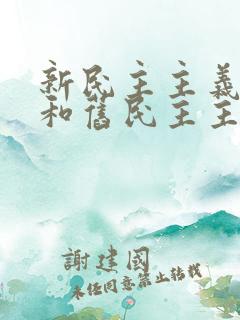 新民主主義
和舊民主主
謝建國
未经同意禁止转载